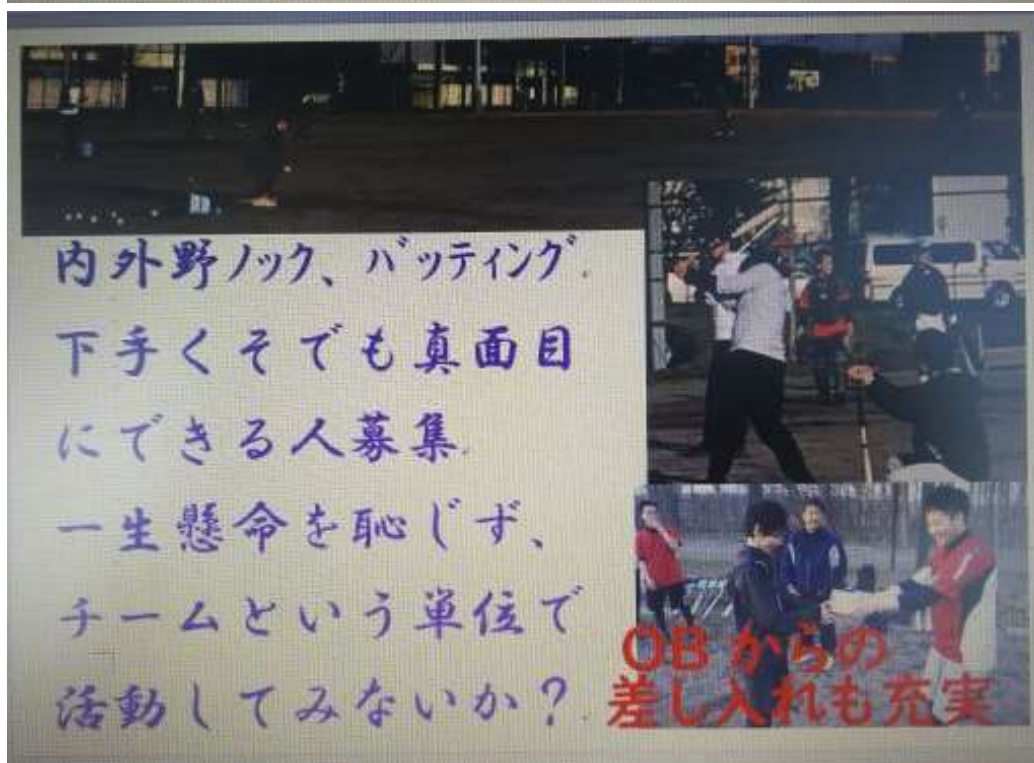 内外野ノック、バッティング.
下手くそでも真面目
にできる人募集.
一生懸命を恥じず、
チームという単位で
活動してみないか?.
OBからの
差し入れも充実